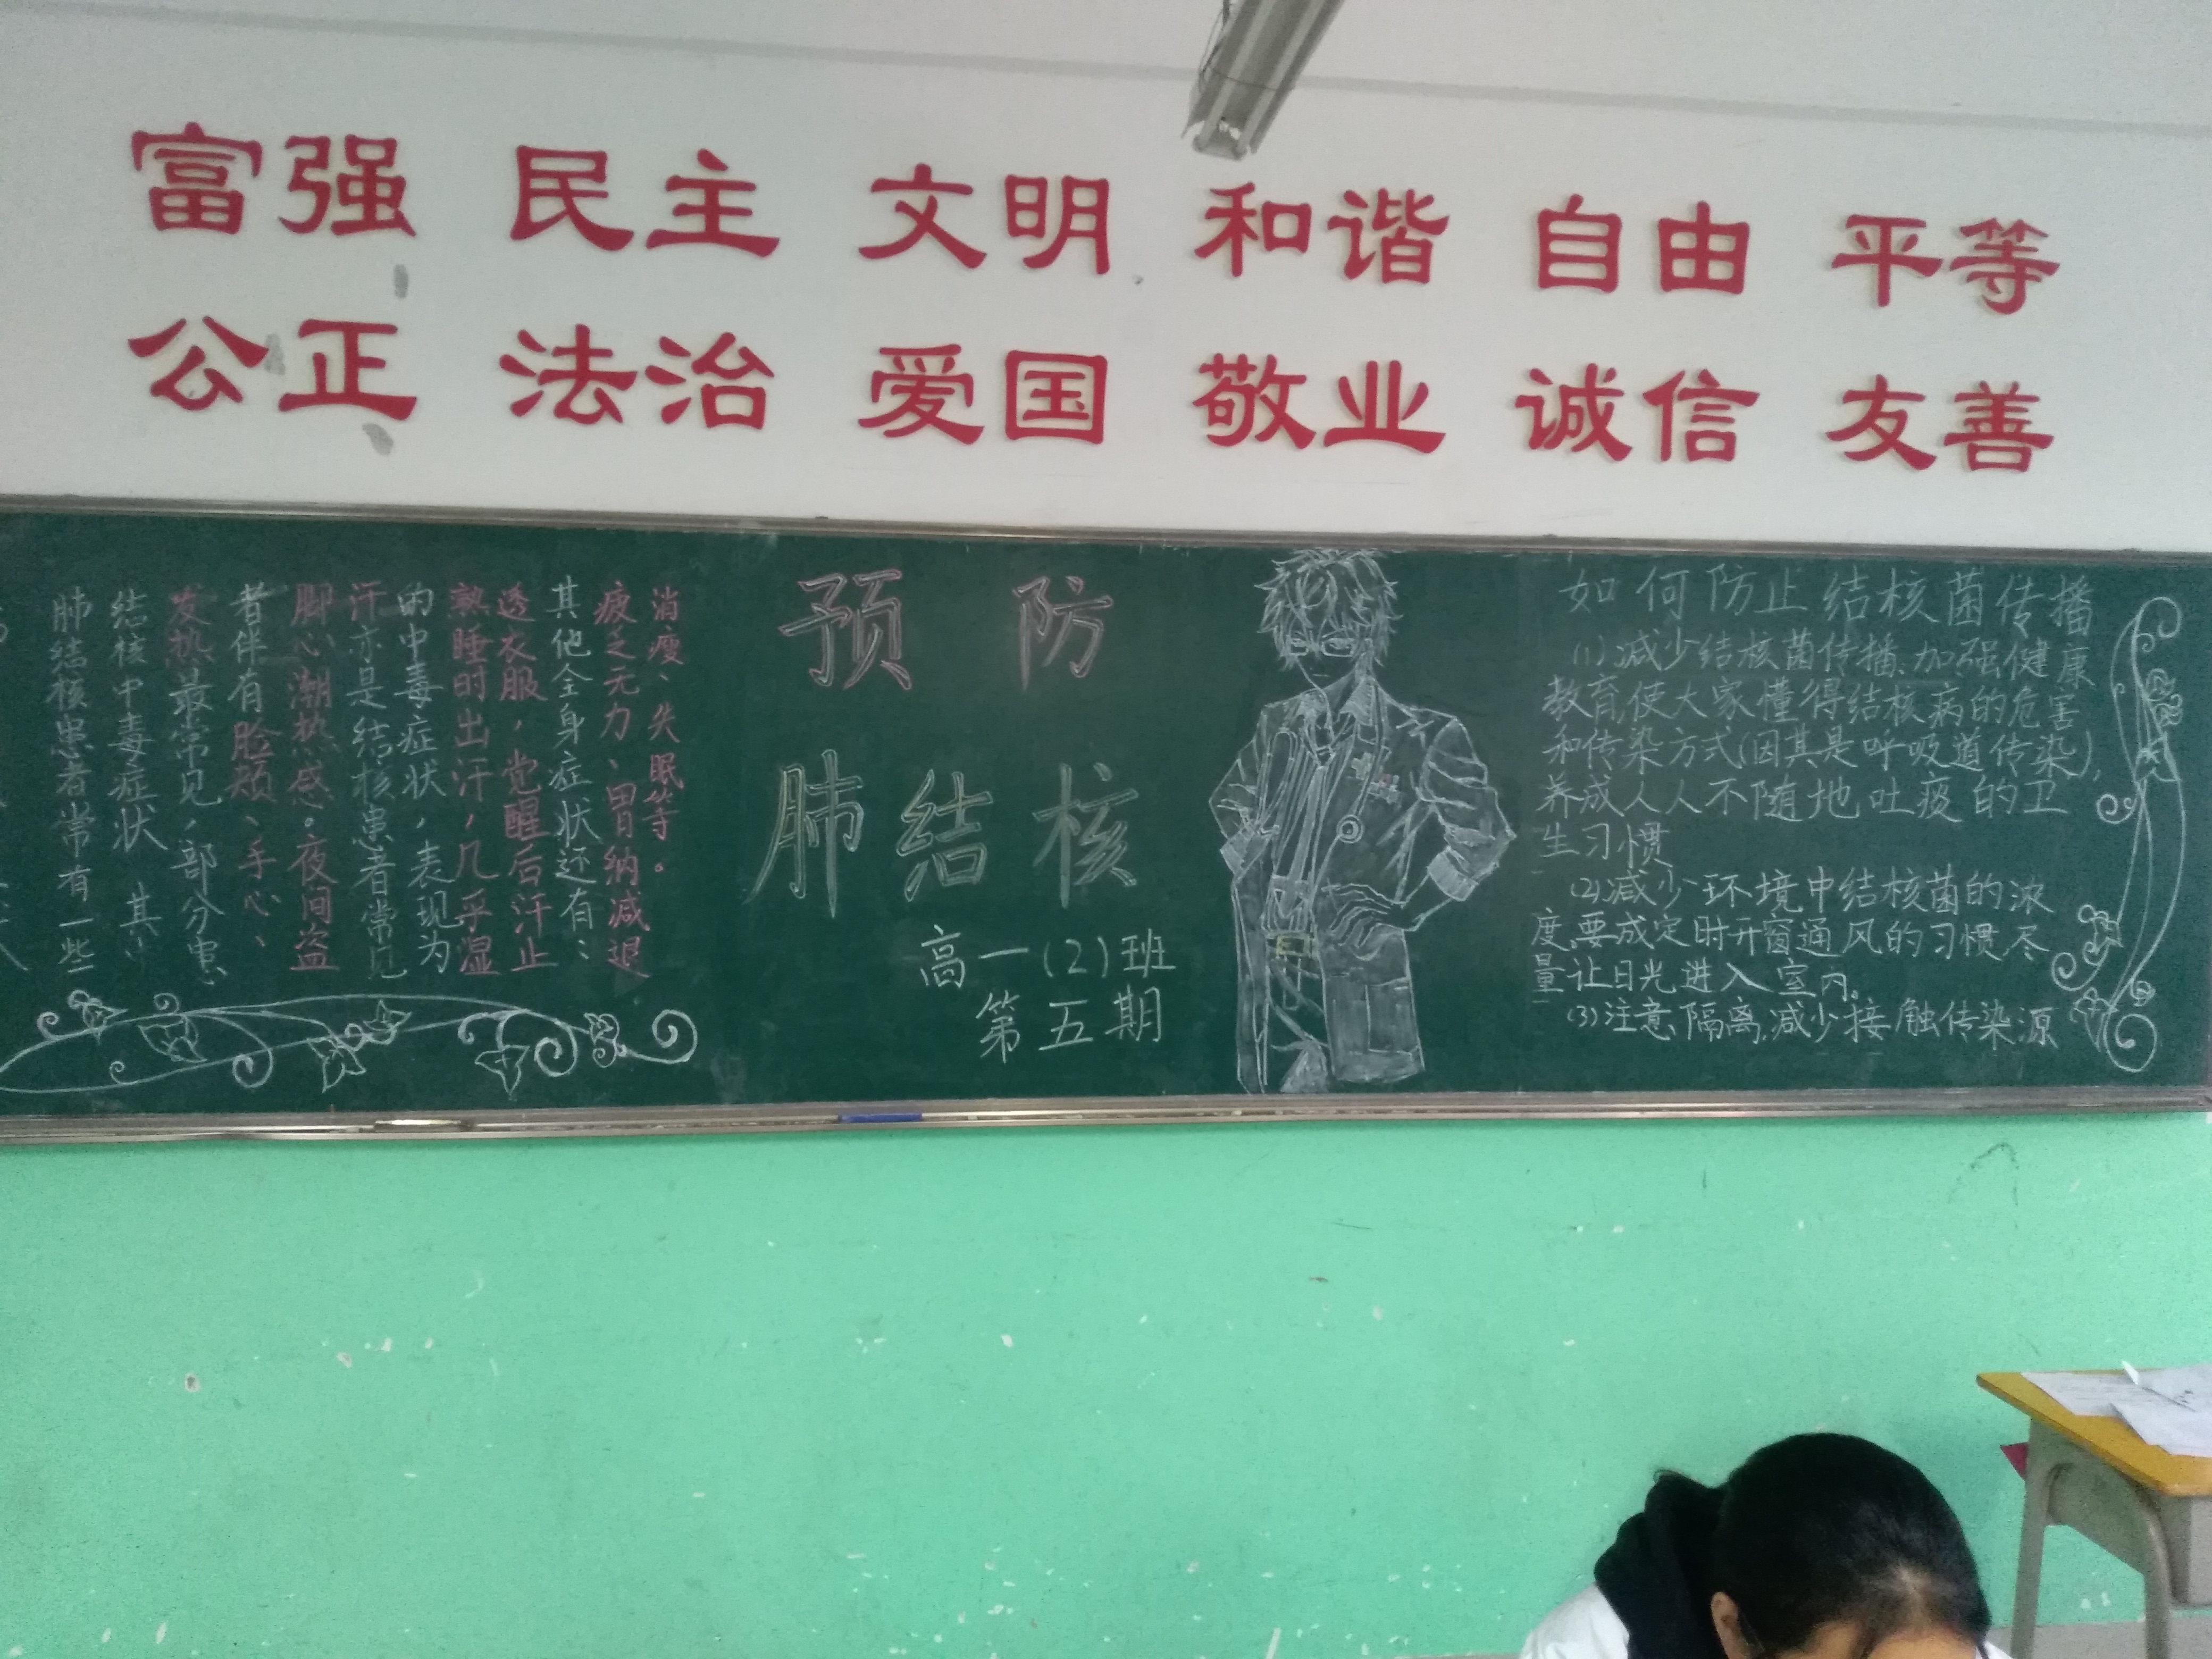 富强 民主 文明 和谐 自由 平等
公正 法治 爱国 敬业 诚信 友善
肺结核患者常有一些
结核中毒症状，其中
发热最常见，部分患
者伴有脸颊、手心、
脚心潮热感。夜间盗
汗亦是结核患者常见
的中毒症状，表现为
熟睡时出汗，几乎湿
透衣服，觉醒后汗止
其他全身症状还有：
疲乏无力、胃纳减退
消瘦、失眠等。
预防
肺结核
高一(2)班
第五期
如何防止结核菌传播
(1)减少结核菌传播、加强健康
教育,使大家懂得结核病的危害
和传染方式(因其是呼吸道传染),
养成人人不随地吐痰的卫
生习惯
(2)减少环境中结核菌的浓
度,要成定时开窗通风的习惯尽
量让日光进入室内。
(3)注意隔离,减少接触传染源